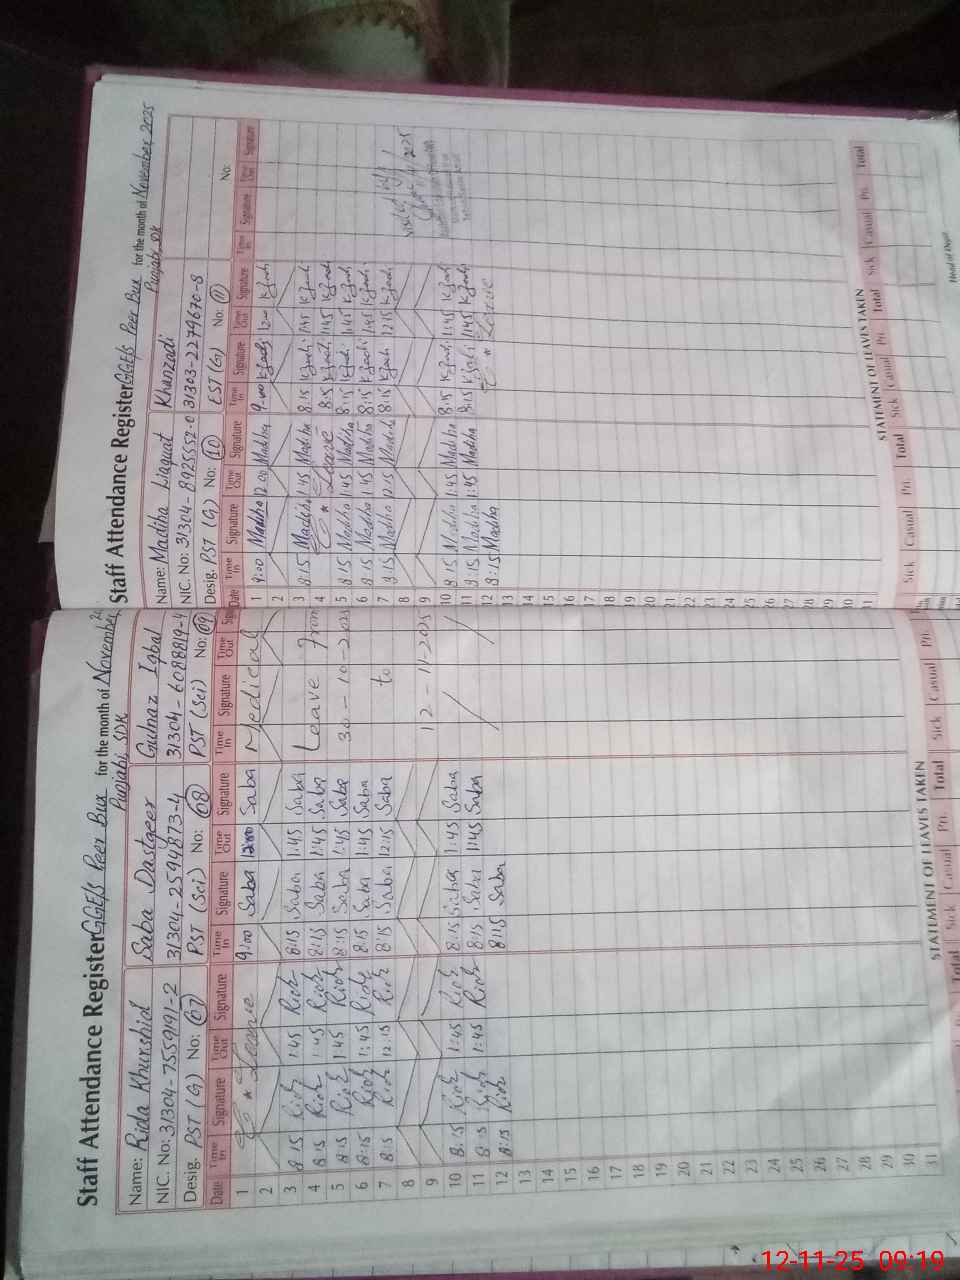 Staff Attendance Register GGE/S Peer Bux for the month of November
Punjabi, SDK
Name: Rida Khurshid Saba Dastgeer Gulnaz Iqbal
NIC. No: 31304-7559191-2 31304-2594873-4 31304-6088819-4
Desig. PST (G) No: 07 PST (Sci) No: 08 PST (Sci) No: 09
Date Time In Signature Time Out Signature Time In Signature Time Out Signature Time In Signature Time Out
1 Leave 9:00 Saba 12:00 Saba Medical
2
3 8:15 Rida 1:45 Rida 8:15 Saba 1:45 Saba Leave from
4 8:15 Rida 1:45 Rida 8:15 Saba 1:45 Saba
5 8:15 Rida 1:45 Rida 8:15 Saba 1:45 Saba 30-10-2025
6 8:15 Rida 1:45 Rida 8:15 Saba 1:45 Saba
7 8:15 Rida 12:15 Rida 8:15 Saba 12:15 Saba to
8
9 12-11-2025
10 8:15 Rida 1:45 Rida 8:15 Saba 1:45 Saba
11 8:15 Rida 1:45 Rida 8:15 Saba 1:45 Saba
12 8:15 Rida 8:15 Saba
13
14
15
16
17
18
19
20
21
22
23
24
25
26
27
28
29
30
31
STATEMENT OF LEAVES TAKEN
Total Sick Casual Pri. Total Sick Casual Pri.
Staff Attendance Register GGE/S Peer Bux for the month of November, 2025
Punjabi, SDK
Name: Madiha Liaquat Khanzadi
NIC. No: 31304-8925552-0 31303-2279670-8
Desig. PST (G) No: 10 EST (G) No: 11 No:
Date Time In Signature Time Out Signature Time In Signature Time Out Signature Time In Signature Time Out Signature
1 9:00 Madiha 12:00 Madiha 9:00 Kzadi 12:00 Kzadi
2
3 8:15 Madiha 1:45 Madiha 8:15 Kzadi 1:45 Kzadi
4 Leave 8:15 Kzadi 1:45 Kzadi
5 8:15 Madiha 1:45 Madiha 8:15 Kzadi 1:45 Kzadi
6 8:15 Madiha 1:45 Madiha 8:15 Kzadi 1:45 Kzadi
7 8:15 Madiha 12:15 Madiha 8:15 Kzadi 12:15 Kzadi
8
9
10 8:15 Madiha 1:45 Madiha 8:15 Kzadi 1:45 Kzadi
11 8:15 Madiha 1:45 Madiha 8:15 Kzadi 1:45 Kzadi
12 8:15 Madiha Leave
13
14
15
16
17
18
19
20
21
22
23
24
25
26
27
28
29
30
31
STATEMENT OF LEAVES TAKEN
Sick Casual Pri. Total Sick Casual Pri. Total Sick Casual Pri. Total
Head of Dept.
12-11-25 09:19